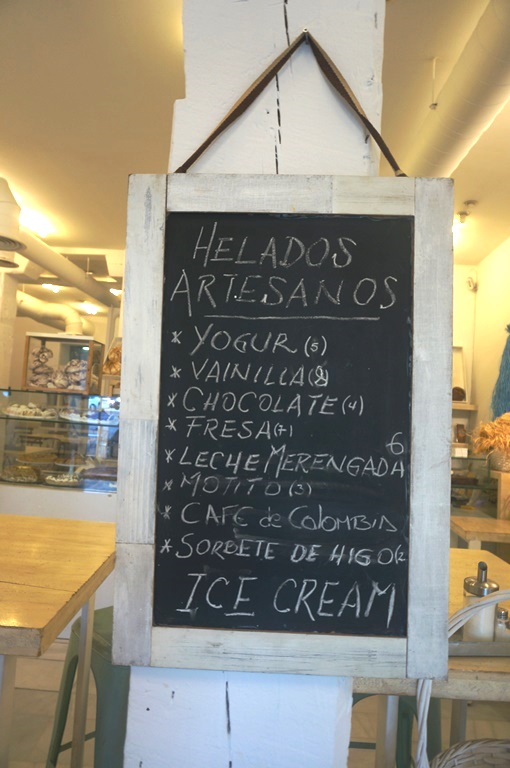 HELADOS
ARTESANOS
* YOGUR (5)
* VAINILLA (8)
* CHOCOLATE (4)
* FRESA (7)
6
* LECHE MERENGADA
* MOJITO (3)
* CAFE de COLOMBIA
* SORBETE DE HIGO (2
ICE CREAM